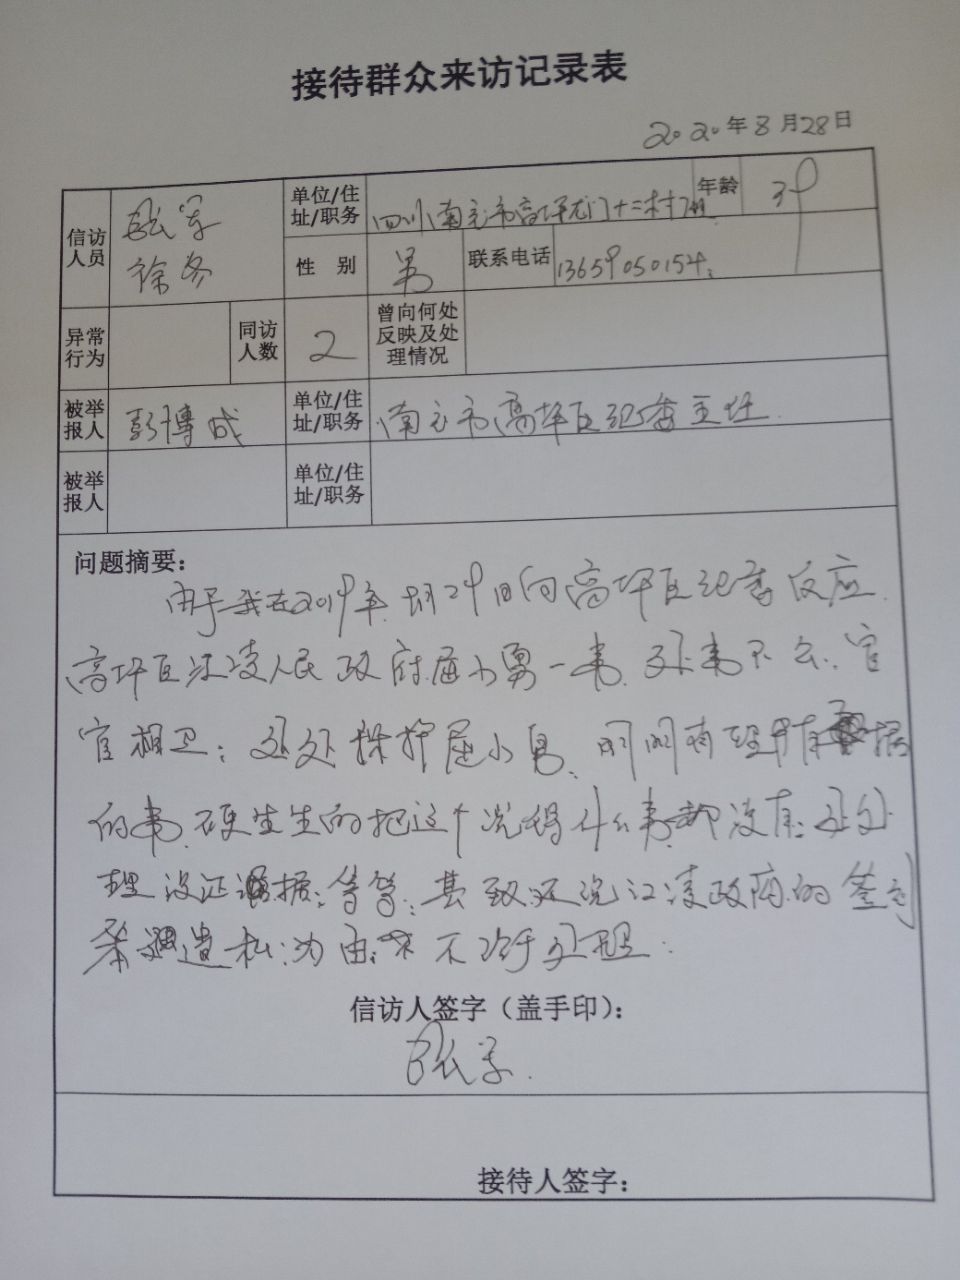 接待群众来访记录表
2020年8月28日
信访人员 张军 徐冬 单位/住址/职务 四川南充市高坪龙门十二村 年龄 39
性 别 男 联系电话 13659050154
异常行为 同访人数 2 曾向何处反映及处理情况
被举报人 彭博成 单位/住址/职务 南充市高坪区纪委主任
被举报人 单位/住址/职务
问题摘要:
由于我在2019年 月29日向高坪区纪委反应
高坪区江凌人民政府屈小勇一事.处事不公.官
官相卫;处处株护屈小勇.明明有 据
的事.硬生生的把这个说得什么事都没有;处处
理没证据;等等;甚致还说江凌政府的签到
表遗 为由 不 于处理.
信访人签字(盖手印):
张军.
接待人签字: